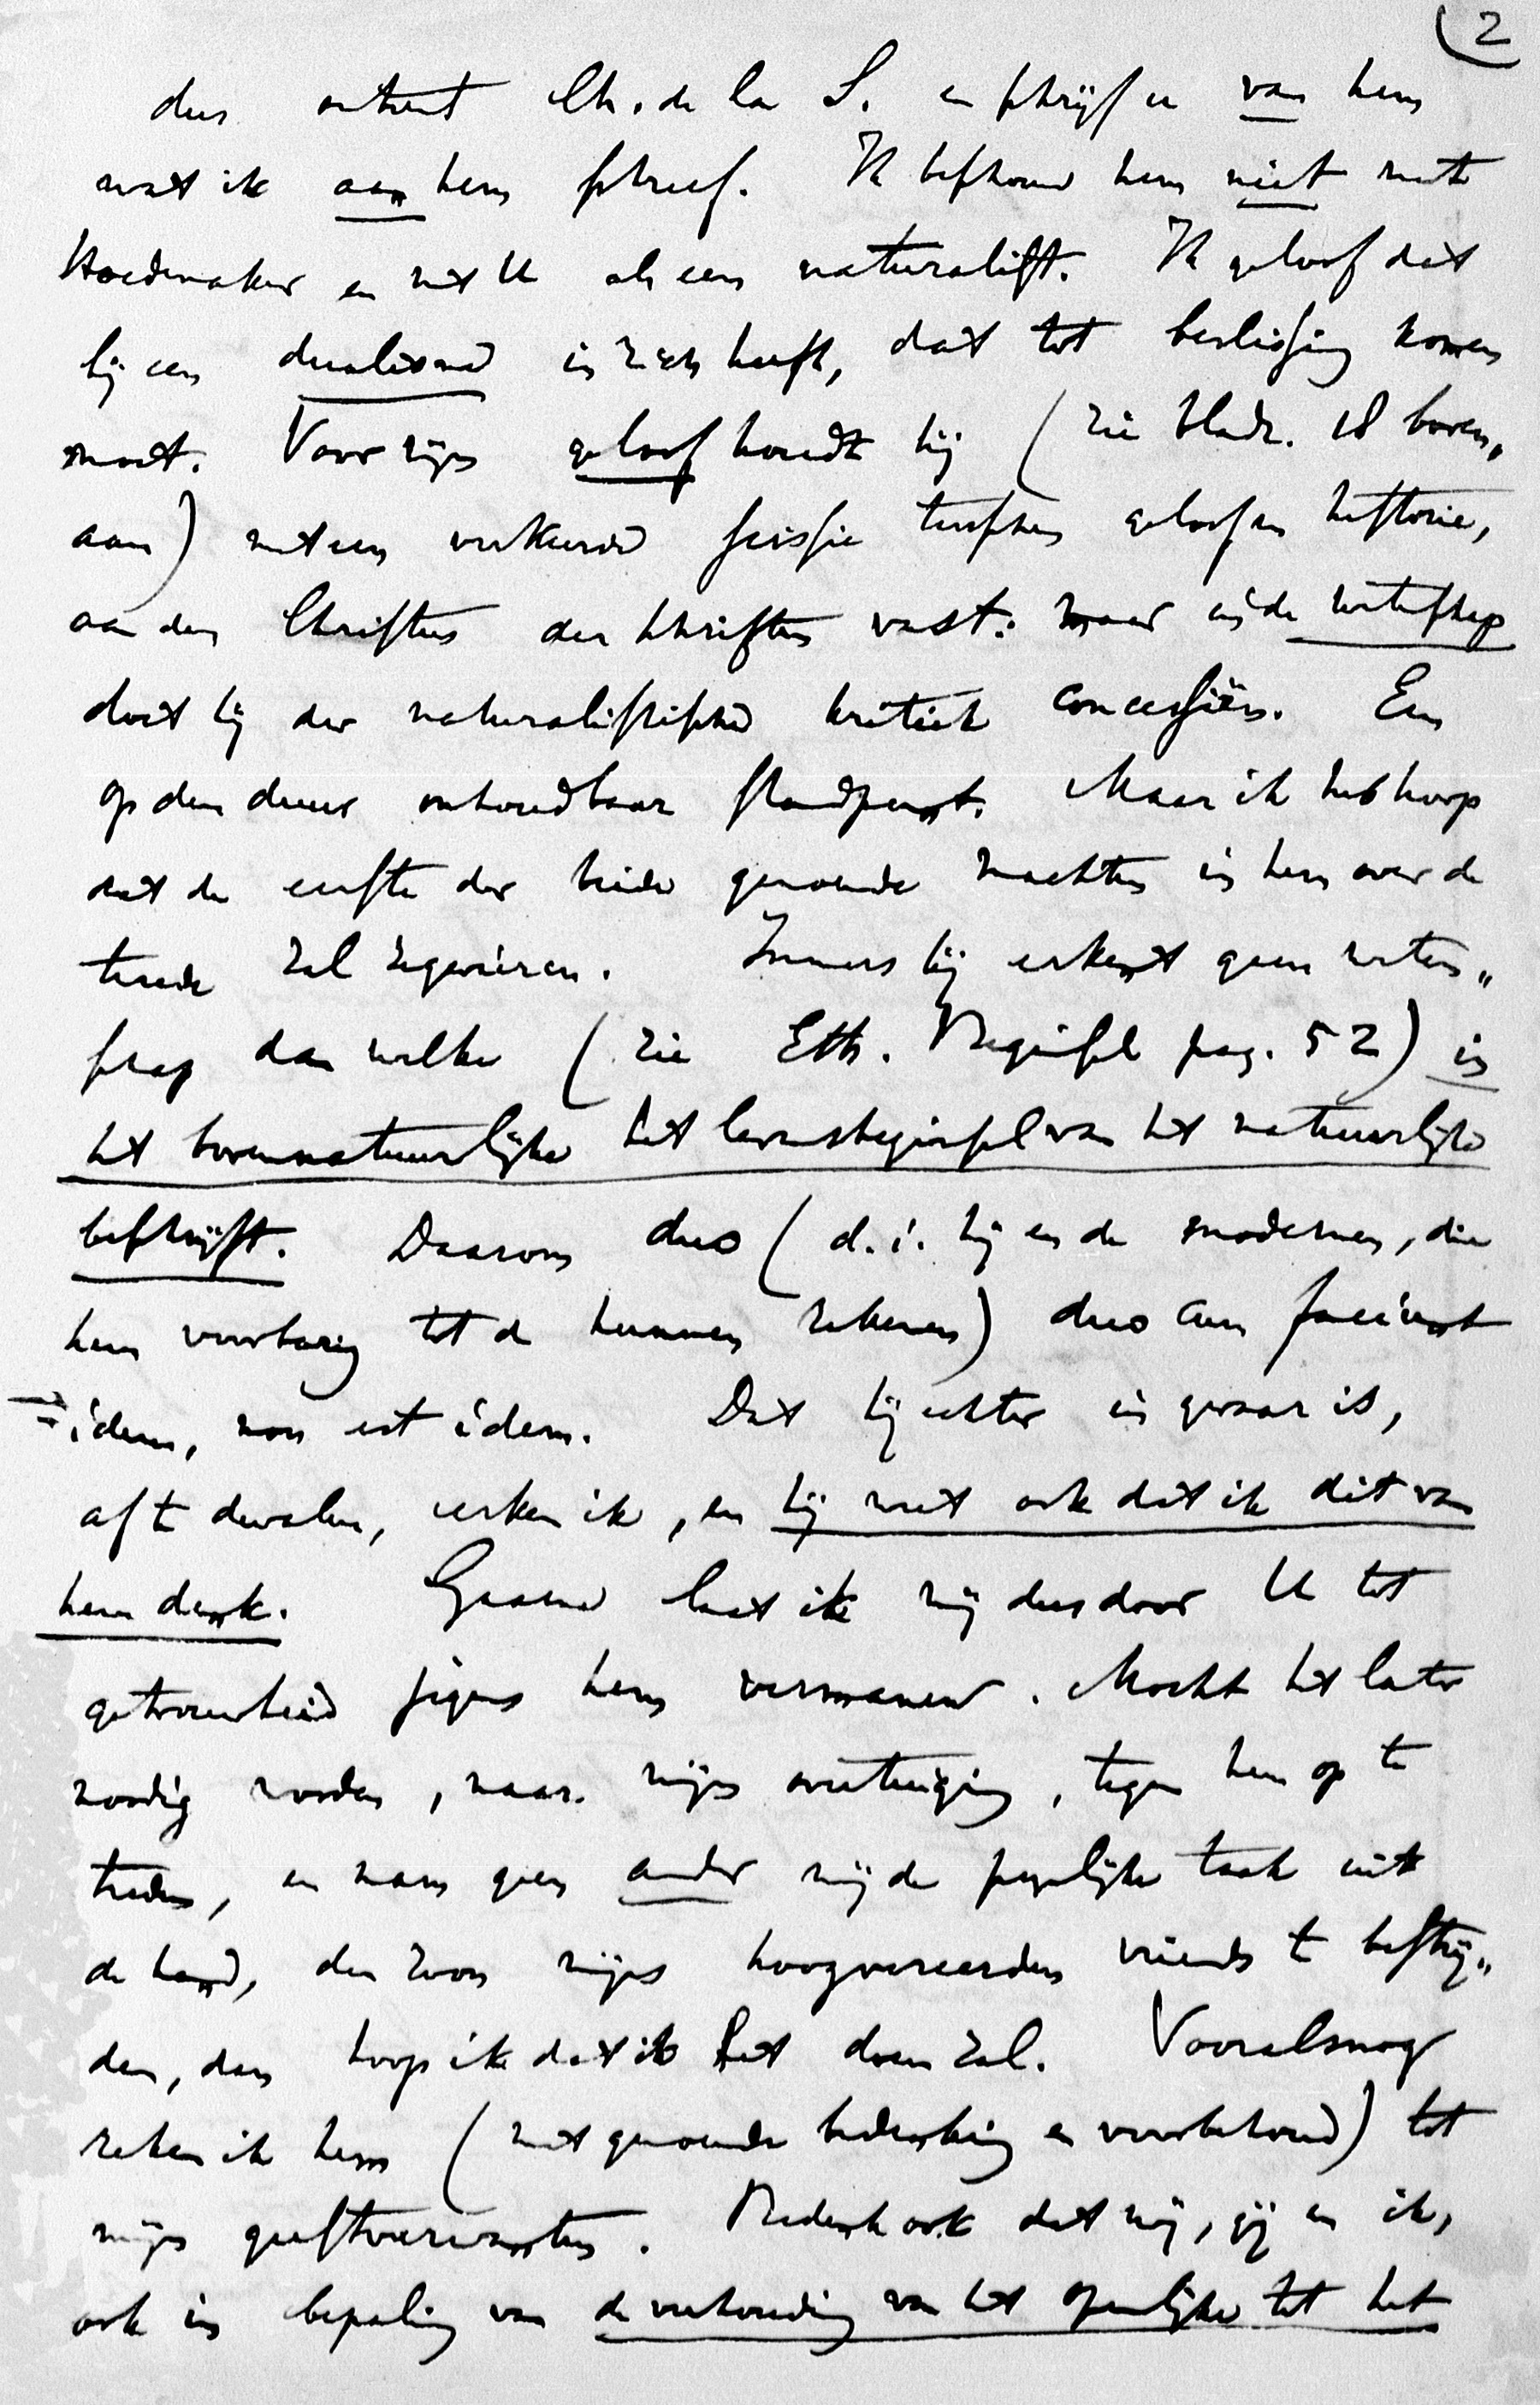 (2
dus omtrent Ch. de la S. en schrijf u van hem
wat ik aan hem schreef. Ik beschouw hem niet met
Hoedemaker en met U als een naturalist. Ik geloof dat
hij een dualisme in zich heeft, dat tot beslissing komen
moet. Voor zijn geloof houdt hij (zie bladz. 18 boven„
aan) met een verkeerde scissie tusschen geloof en historie,
aan den Christus der Schriften vast: maar in de wetenschap
doet hij der naturalistische kritiek concessiën. Een
op den duur onhoudbaar standpunt. Maar ik heb hoop
dat de eerste der beide genoemde machten in hem over de
tweede zal zegevieren. Immers hij erkent geen weten„
schap dan welke (zie Eth. Beginsel pag. 52) in
het bovennatuurlijke het levensbeginsel van het natuurlijke
beschrijft. Daarom duo (d.i. hij en de modernen, die
hem voorbarig tot de hunnen rekenen) duo cum faciunt
idem, non est idem. Dat hij echter in gevaar is,
af te dwalen, erken ik, en hij weet ook dat ik dit van
hem denk. Gaarne laat ik mij dus door U tot
getrouwheid jegens hem vermanen. Mocht het later
noodig worden, naar mijn overtuiging, tegen hem op te
treden, en nam geen ander mij de pijnlijke taak uit
de hand, den zoon mijns hoogvereerden vriends te bestrij„
den, dan hoop ik dat ik het doen zal. Vooralsnog
reken ik hem (met genoemde bedenking en voorbehoud) tot
mijn geestverwanten. Bedenk ook dat wij, gij en ik,
ook in bepaling van de verhouding van het openlijke tot het